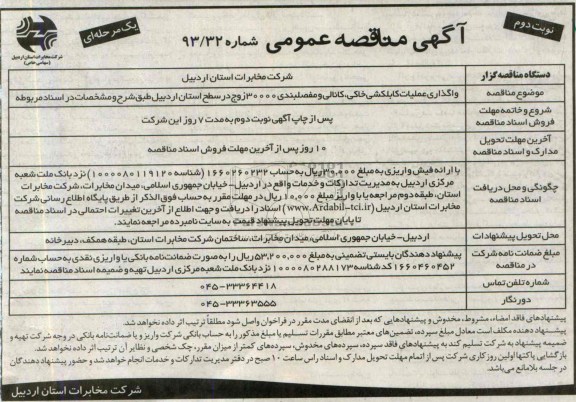 نوبت دوم
آگهی مناقصه عمومی شماره ۹۳/۳۲
یک مرحله‌ای
شرکت مخابرات استان اردبیل
(سهامی خاص)
دستگاه مناقصه گزار
شرکت مخابرات استان اردبیل
موضوع مناقصه
واگذاری عملیات کابلکشی خاکی، کانالی و مفصلبندی ۳۰۰۰۰ زوج در سطح استان اردبیل طبق شرح و مشخصات در اسناد مربوطه
شروع و خاتمه مهلت
فروش اسناد مناقصه
پس از چاپ آگهی نوبت دوم به مدت ۷ روز این شرکت
آخرین مهلت تحویل
مدارک و اسناد مناقصه
۱۰ روز پس از آخرین مهلت فروش اسناد مناقصه
چگونگی و محل دریافت
اسناد مناقصه
با ارائه فیش واریزی به مبلغ ۳۰٫۰۰۰ ریال به حساب ۱۶۶۰۲۶۰۲۳۲ (شناسه ۱۰۰۰۰۸۰۱۱۹۱۲۰) نزد بانک ملت شعبه
مرکزی اردبیل به مدیریت تدارکات و خدمات واقع در اردبیل- خیابان جمهوری اسلامی، میدان مخابرات، شرکت مخابرات
استان، طبقه دوم مراجعه یا با واریز مبلغ ۱۰٫۰۰۰ ریال در مهلت مقرر به حساب فوق الذکر از طریق پایگاه اطلاع رسانی شرکت
مخابرات استان اردبیل (www.Ardabil-tci.ir) اسناد را دریافت و جهت اطلاع از آخرین تغییرات احتمالی در اسناد مناقصه
تا پایان مهلت تحویل پیشنهاد قیمت به سایت نامبرده مراجعه نمایند.
محل تحویل پیشنهادات
اردبیل- خیابان جمهوری اسلامی، میدان مخابرات، ساختمان شرکت مخابرات استان، طبقه همکف، دبیرخانه
مبلغ ضمانت نامه شرکت
در مناقصه
پیشنهاد دهندگان بایستی تضمینی به مبلغ ۵۳٫۲۰۰٫۰۰۰ ریال را به صورت ضمانت نامه بانکی یا واریزی نقدی به حساب شماره
۱۶۶۰۴۶۰۴۵۲ کد شناسه ۱۰۰۰۰۸۰۲۸۸۱۷۳ نزد بانک ملت شعبه مرکزی اردبیل تهیه و ضمیمه اسناد مناقصه نمایند
شماره تلفن تماس
۰۴۵-۳۳۳۶۴۴۱۸
دور نگار
۰۴۵-۳۳۳۶۳۵۵۵
پیشنهادهای فاقد امضاء، مشروط، مخدوش و پیشنهادهایی که بعد از انقضای مدت مقرر در فراخوان واصل شود مطلقاً ترتیب اثر داده نخواهد شد.
پیشنهاد دهنده مکلف است معادل مبلغ سپرده، تضمین‌های معتبر مطابق مقررات تسلیم یا مبلغ مذکور را به حساب بانکی شرکت واریز و یا ضمانت‌نامه بانکی در وجه شرکت تهیه و
ضمیمه پیشنهاد به شرکت تسلیم کند به پیشنهادهای فاقد سپرده، سپرده‌های مخدوش، سپرده‌های کمتر از میزان مقرر، چک شخصی و نظایر آن ترتیب اثر داده نخواهد شد.
بازگشایی پاکتها اولین روز کاری شرکت پس از اتمام مهلت تحویل مدارک و اسناد راس ساعت ۱۰ صبح در دفتر مدیریت تدارکات و خدمات انجام خواهد شد و حضور پیشنهاد دهندگان
در جلسه بلامانع می‌باشد.
شرکت مخابرات استان اردبیل